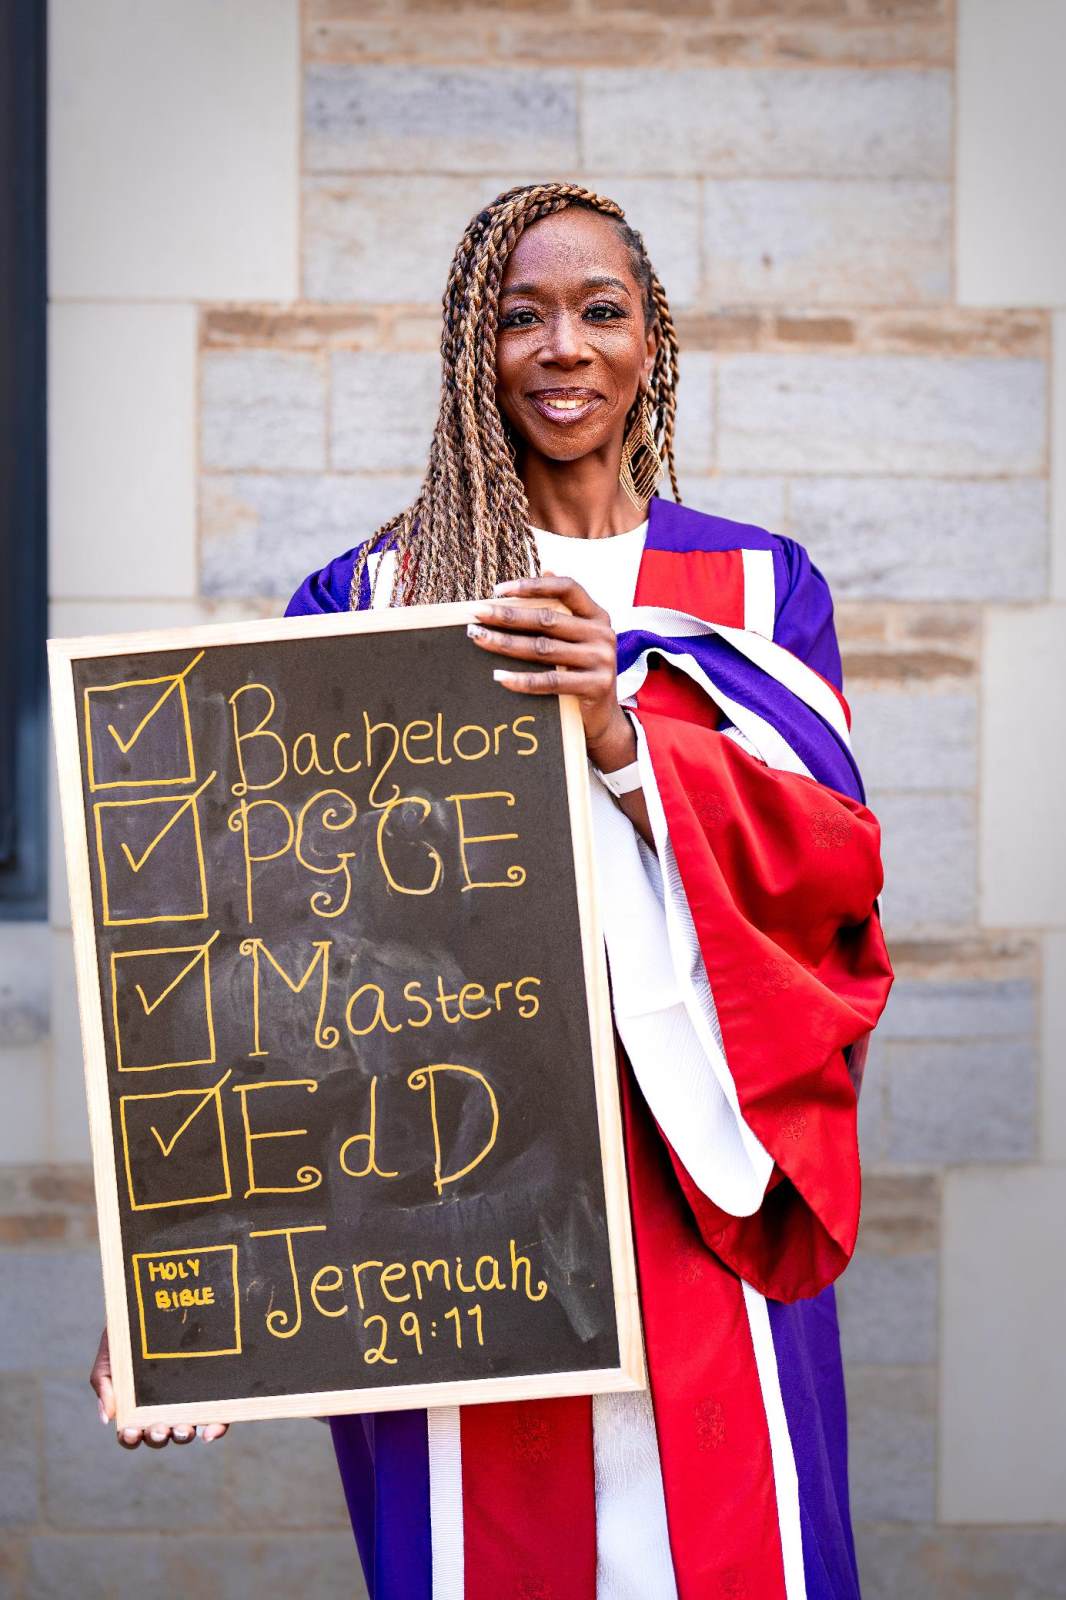 Bachelors
PGCE
Masters
EdD
HOLY
BIBLE
Jeremiah
29:11